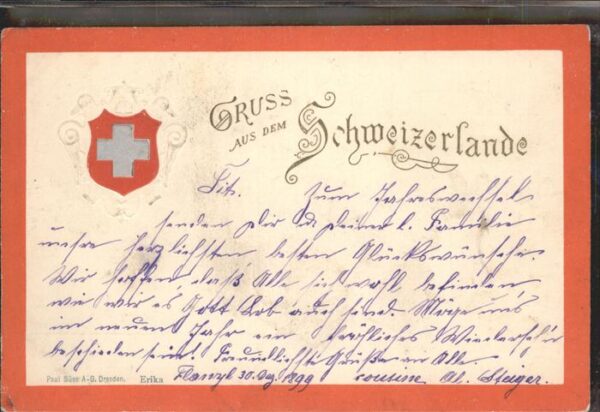 Gruss
aus dem
Schweizerlande
Tit. Zum Jahreswechsel
senden Dir u Deiner l. Familie
unsre herzlichsten besten Glückwünsche.
Wir hoffen, daß Alle sich wohl befinden
wie wir es Gott Lob auch sind. Möge uns
im neuen Jahr ein fröhliches Wiederseh'n
beschieden sein! Freundlichste Grüsse an Alle
Paul Süss A.-G. Dresden. Erika
30. Dez. 1899 cousine Al. Steiger.